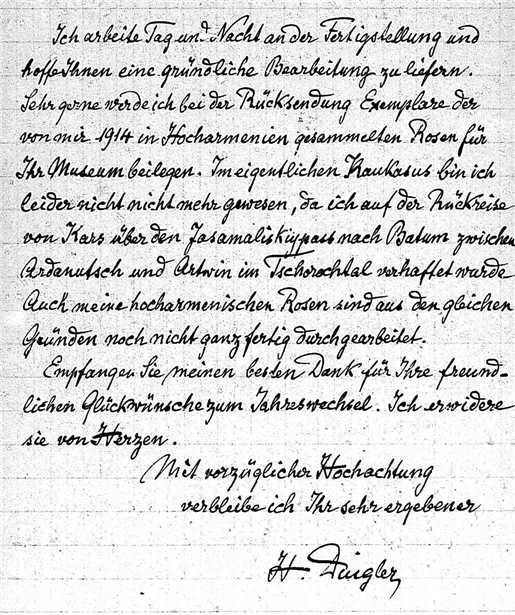 Ich arbeite Tag und Nacht an der Fertigstellung und
hoffe Ihnen eine gründliche Bearbeitung zu liefern.
Sehr gerne werde ich bei der Rücksendung Exemplare der
von mir 1914 in Hocharmenien gesammelten Rosen für
Ihr Museum beilegen. Im eigentlichen Kaukasus bin ich
leider nicht nicht mehr gewesen, da ich auf der Rückreise
von Kars über den Jasamaliskijpass nach Batum zwischen
Ardanutsch und Artwin im Tschorochtal verhaftet wurde
Auch meine hocharmenischen Rosen sind aus den gleichen
Gründen noch nicht ganz fertig durchgearbeitet.
Empfangen Sie meinen besten Dank für Ihre freund-
lichen Glückwünsche zum Jahreswechsel. Ich erwidere
sie von Herzen.
Mit vorzüglicher Hochachtung
verbleibe ich Ihr sehr ergebener
H. Dingler